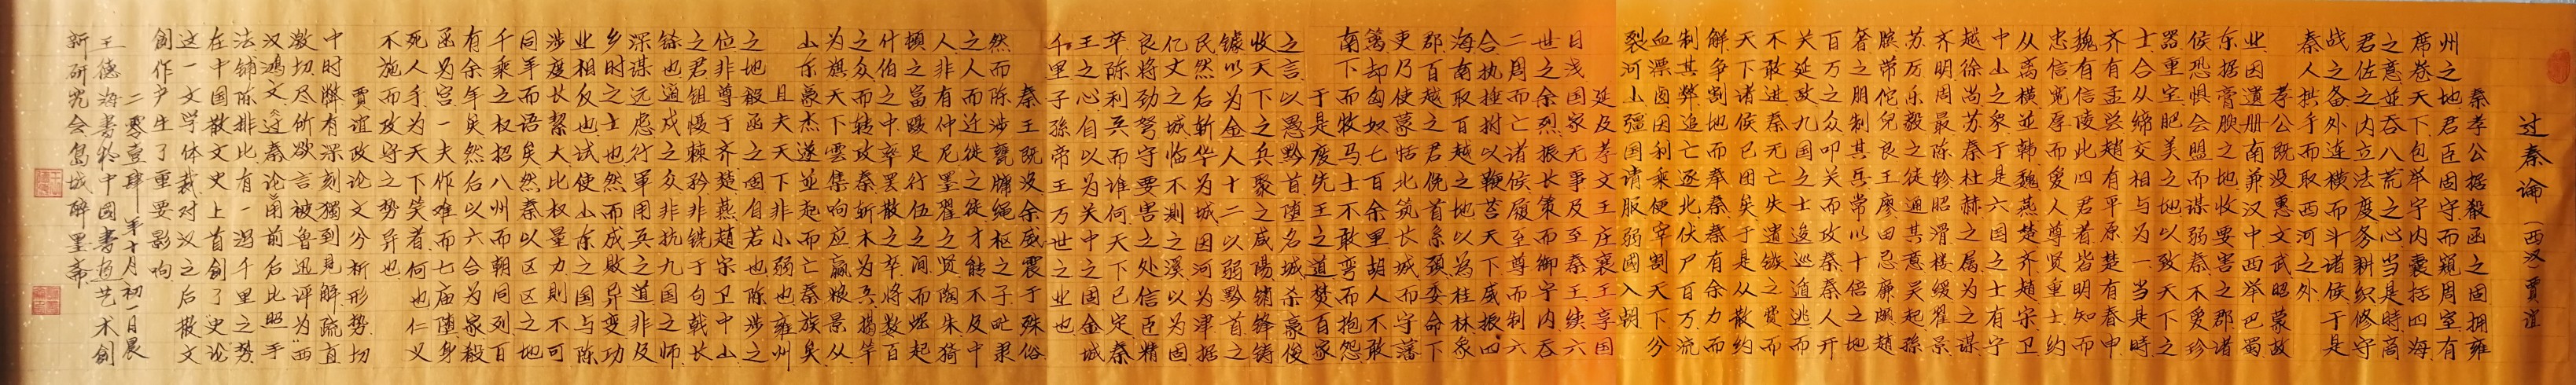 过秦论 (西汉)贾谊
秦孝公据殽函之固拥雍
州之地君臣固守而窥周室有
席卷天下包举宇内囊括四海
之意並吞八荒之心当是時商
君佐之内立法度务耕织修守
战之备外连横而斗诸侯于是
秦人拱手而取西河之外
孝公既没惠文武昭蒙故
业因遗册南兼汉中西举巴蜀
东据膏腴之地收要害之郡诸
侯恐惧会盟而谋弱秦不爱珍
器重宝肥美之地以致天下之
士合从缔交相与为一当是時
齐有孟尝赵有平原楚有春申
魏有信陵此四君者皆明知而
忠信宽厚而爱人尊贤重士约
从离横並韩魏燕楚齐赵宋卫
中山之衆于是六国之士有宁
越徐尚苏秦杜赫之属为之谋
齐明周最陈轸昭滑楼缓翟景
苏厉乐毅之徒通其意吴起孫
膑带佗兒良王廖田忌廉颇赵
奢之朋制其兵常以十倍之地
百万之众叩关而攻秦秦人开
关延敌九国之士逡巡遁逃而
不敢进秦无亡矢遗镞之费而
天下诸侯已困矣于是从散约
解争割地而奉秦秦有余力而
制其弊追亡逐北伏尸百万流
血漂卤因利乘便宰割天下分
裂河山强国请服弱國入朝
延及孝文王庄襄王享国
日浅国家无事及至秦王续六
世之余烈振长策而御宇内吞
二周而亡诸侯履至尊而制六
合执捶拊以鞭笞天下威振四
海南取百越之地以为桂林象
郡百越之君俛首系颈委命下
吏乃使蒙恬北筑长城而守藩
篱却匈奴七百余里胡人不敢
南下而牧马士不敢弯而抱怨
于是废先王之道焚百家
之言以愚黔首堕名城杀豪俊
收天下之兵聚之咸陽销锋铸
鐻以为金人十二以弱黔首之
民然后斩华为城因河为津据
亿丈之城临不测之溪以为固
良将劲弩守要害之处信臣精
卒陈利兵而谁何天下已定秦
王之心自以为关中之固金城
千里子孫帝王万世之业也
秦王既没余威震于殊俗
然而陈涉甕牖绳枢之子甿隶
之人而迁徙之徒才能不及中
人非有仲尼墨翟之贤陶朱猗
顿之富蹑足行伍之间而崛起
什伯之中率罢散之卒将数百
之众而转攻秦斩木为兵揭竿
为旗天下雲集响应赢粮景从
山东豪杰遂並起而亡秦族矣
且夫天下非小弱也雍州
之地殽函之固自若也陈涉之
位非尊于齐楚燕赵宋卫中山
之君锄櫌棘矜非铦于句戟长
铩也谪戍之众非抗九国之师
深谋远虑行军用兵之道非及
乡时之士也然而成败异变功
业相反也试使山东之国与陈
涉度长絜大比权量力則不可
同年而语矣然秦以区区之地
千乘之权招八州而朝同列百
有余年矣然后以六合为家殽
函为宫一夫作难而七庙堕身
死人手为天下笑者何也仁义
不施而攻守之势异也
贾谊政论文分析形势切
中时弊有深刻獨到見解疏直
激切尽所欲言被鲁迅评为西
汉鸿文《过秦论》用前后比照手
法铺陈排比有一泻千里之势
在中国散文史上首创了史论
这一文学体裁对汉之后散文
創作产生了重要影响
二零壹肆年十月初一日晨
王德海书於中国書画艺术創
新研究会岛城醉墨斋